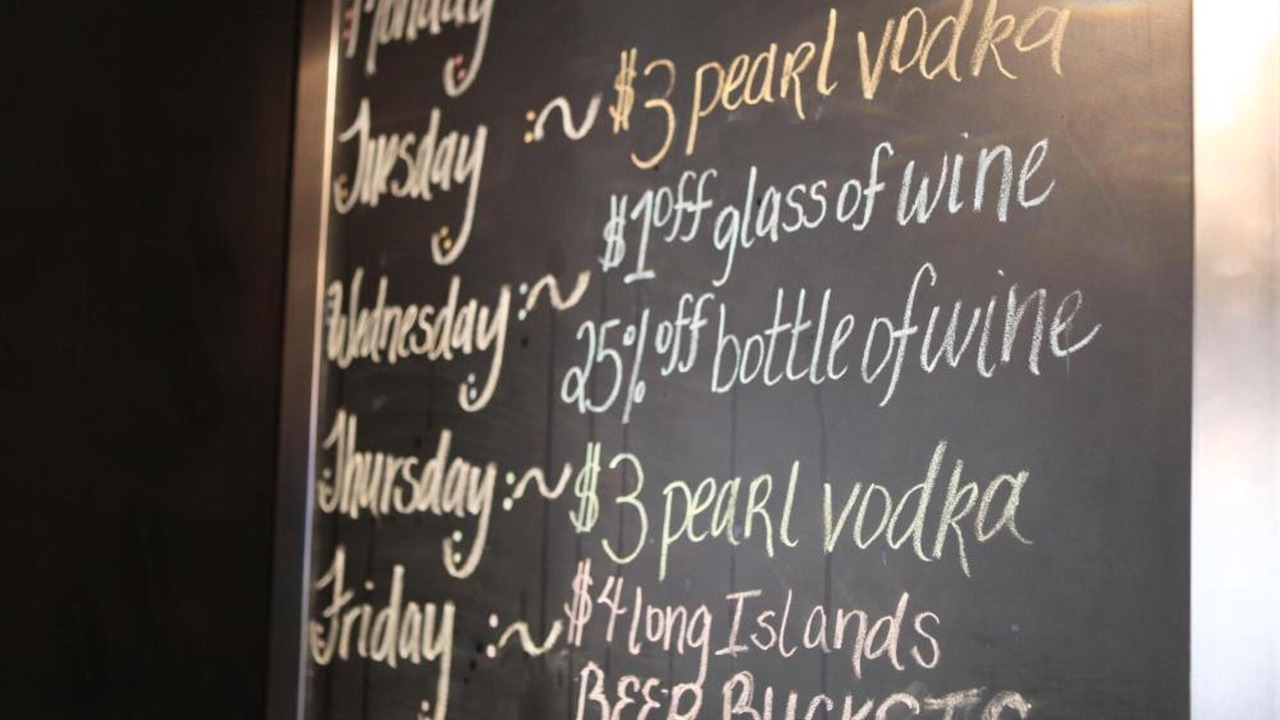 Monday
Tuesday :~ $3 pearl vodka
$1 off glass of wine
Wednesday :~
25% off bottle of wine
Thursday :~ $3 pearl vodka
Friday :~ $4 long Islands
BEER BUCKETS